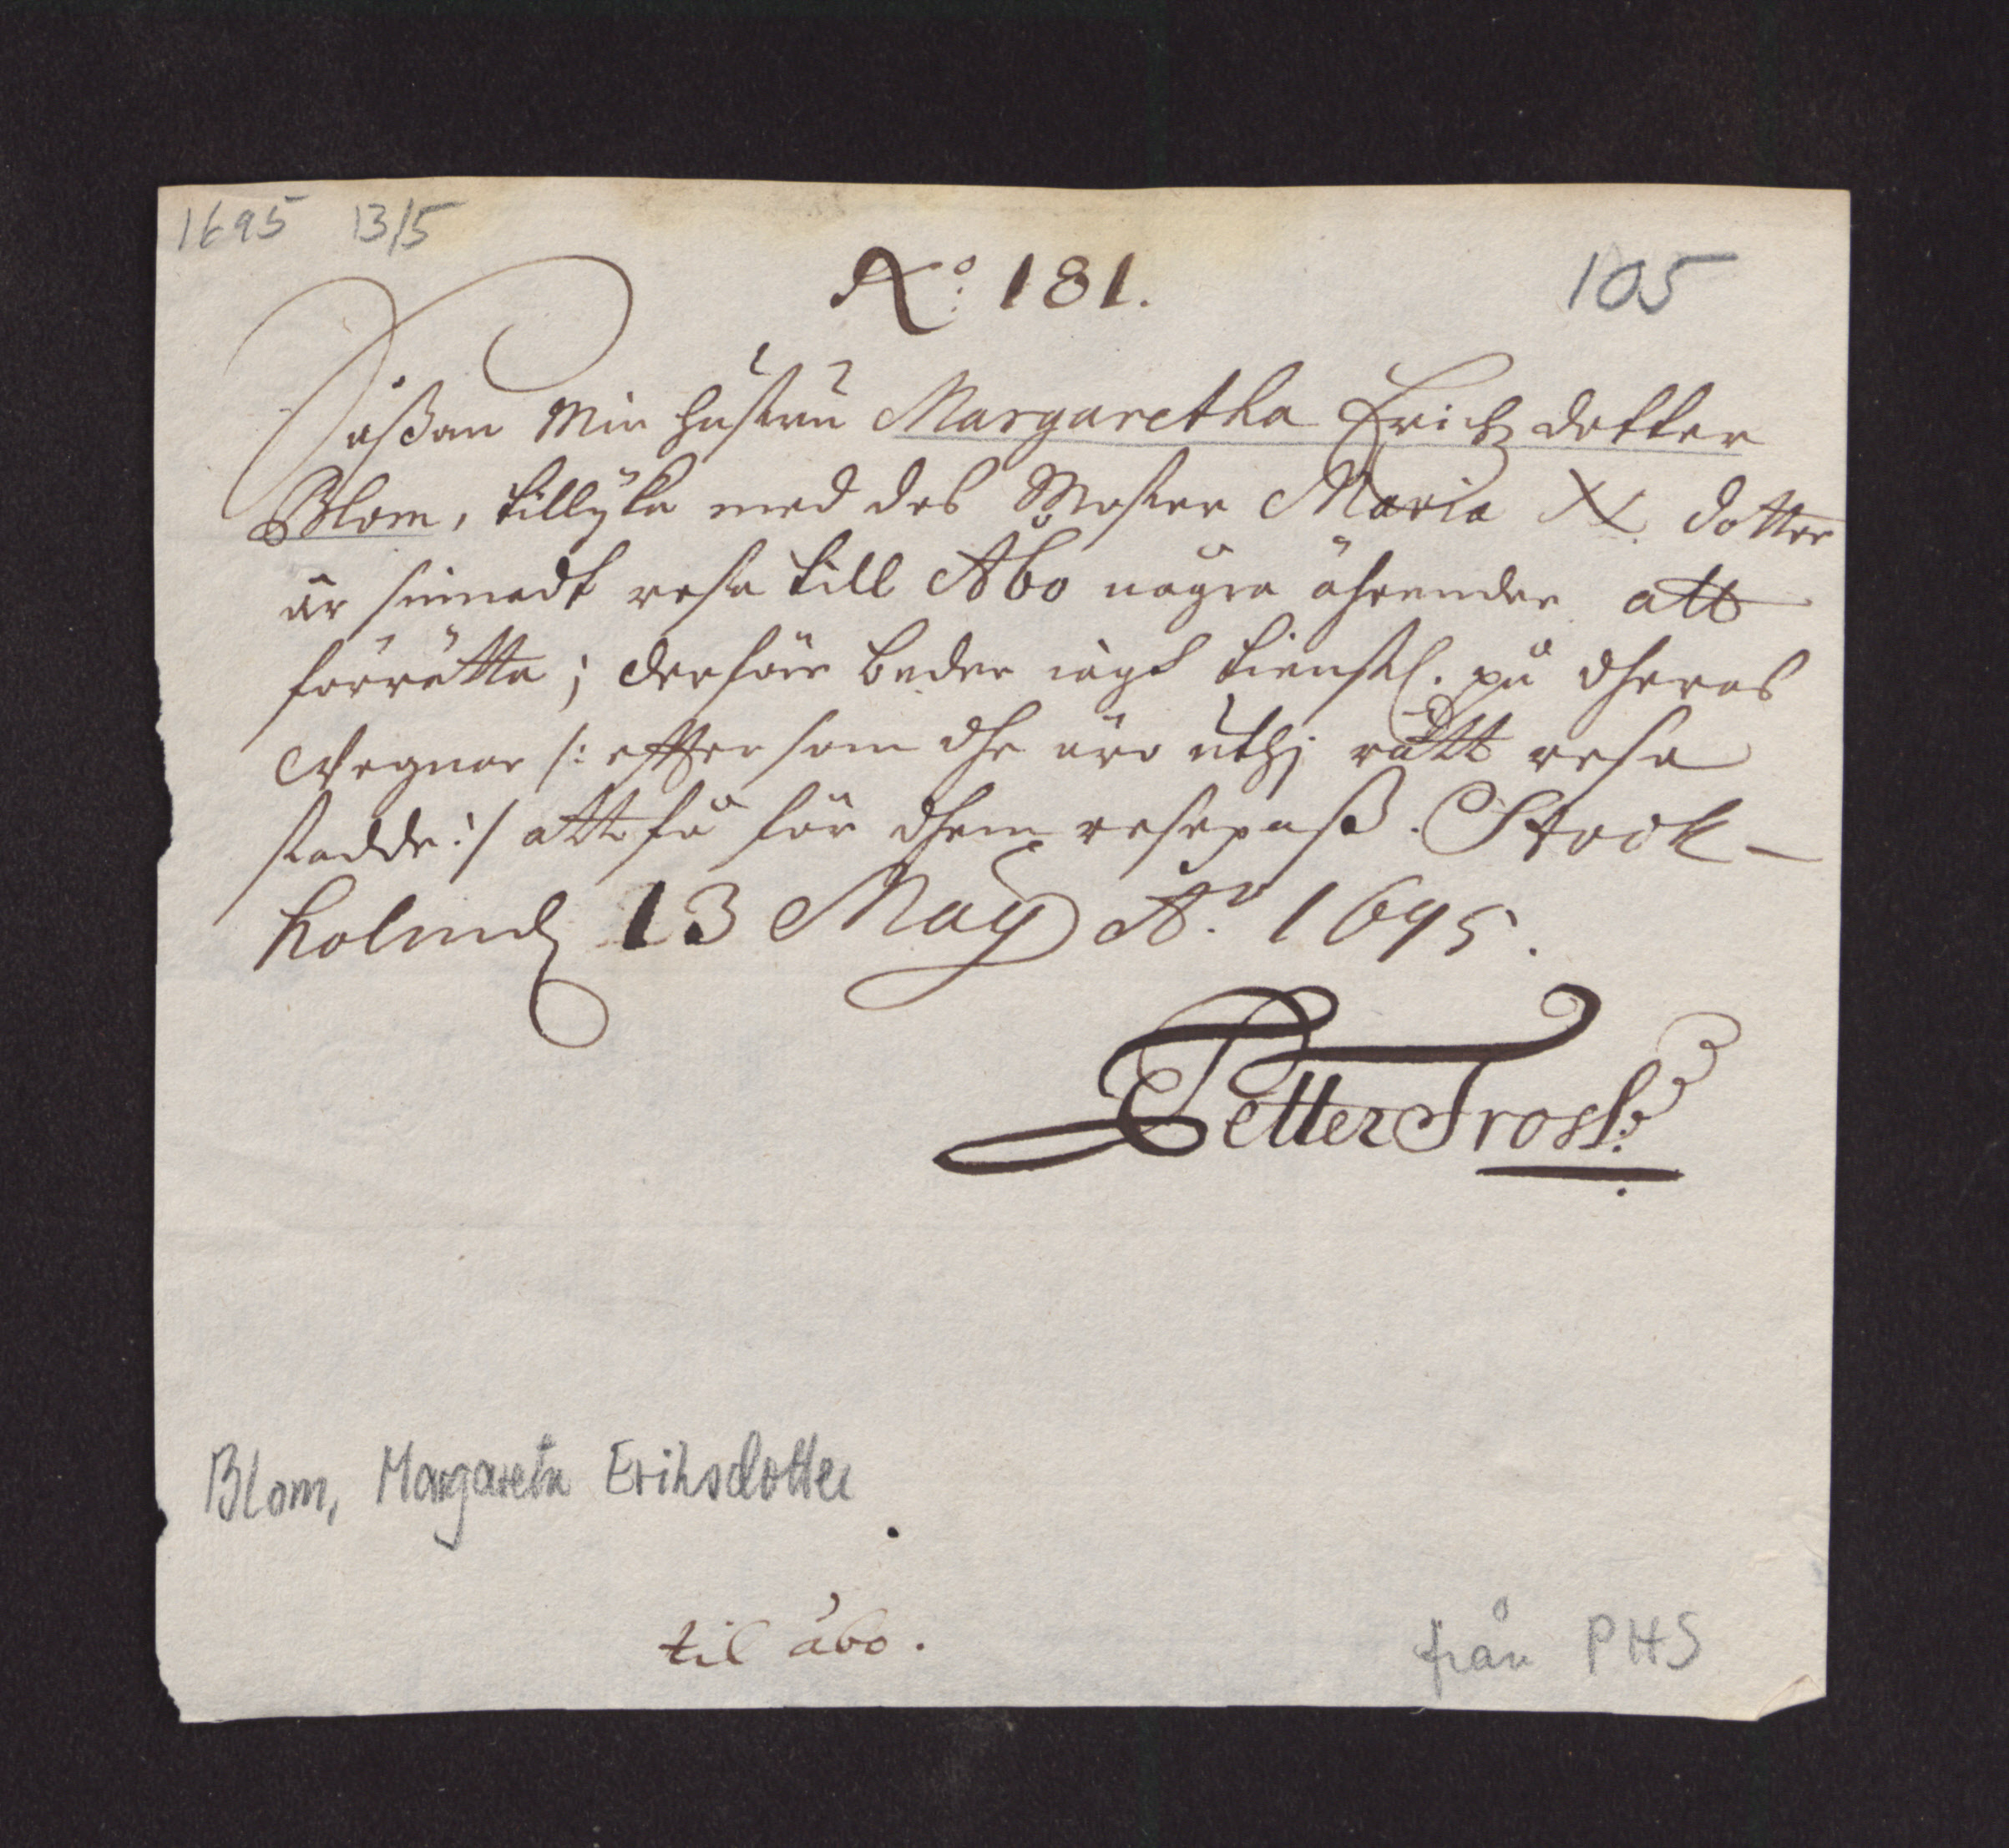 1695 13/5
No: 181.
105
Såßom Min hustru Margaretha Erichz dotter
Blom, tillyka med des Moster Maria N. dotter
är sinnadt resa till Åbo några ährender att
förrätta; derföre beder iagh tienstl. på dheras
Vegnar /: effter som dhe äro uthj rätt resa
stadde :/ att få för dhem resepass. Stock-
holm d. 13 Maÿ Ao. 1695.
Petter Trosk.
Blom, Margareta Eriksdotter
til åbo.
från PHS